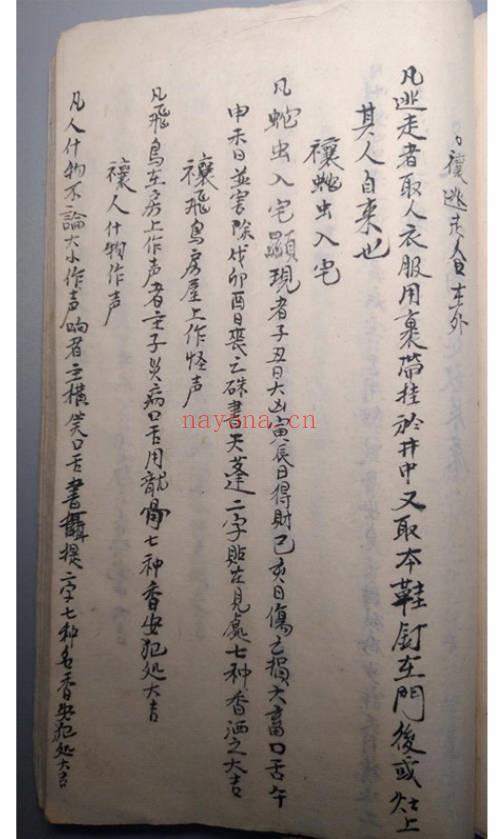 禳逃走人口在外
凡逃走者取人衣服用裹帶挂於井中又取本鞋釘在門後或灶上
其人自来也
禳蛇虫入宅
凡蛇虫入宅顯現者子丑日大凶寅辰日得財巳亥日傷亡損六畜口舌午
申未日並害除戌卯酉日喪亡硃書天蓬二字貼在見處七种香洒之大吉
禳飛鳥房屋上作怪声
凡飛鳥在房上作声者主子災病口舌用龍骨七种香安犯処大吉
禳人什物作声
凡人什物不論大小作声响者主横災口舌書攝提二字七种名香安犯処大吉
nayona.cn